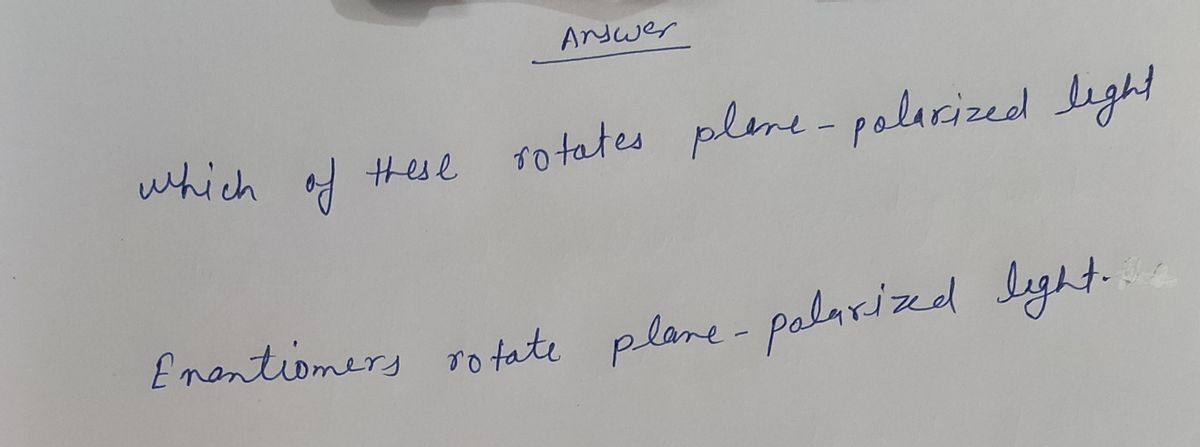 Answer
which of these rotates plane-polarized light
Enantiomers rotate plane-polarized light.